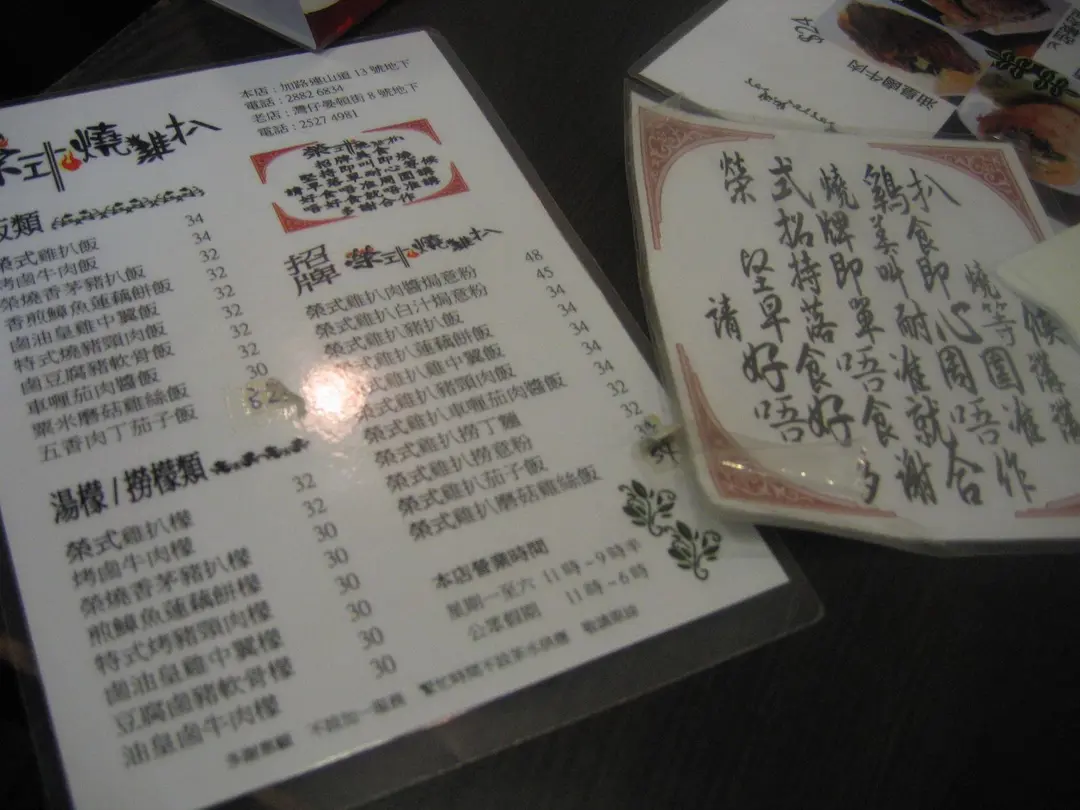 本店：加路連山道 13 號地下
電話：2882 6834
老店：灣仔晏頓街 8 號地下
電話：2527 4981
榮式燒雞扒
榮式燒雞扒
招牌美食
堅持即叫即燒
請早落單耐心等候
好好食唔准周圍講
唔好食就唔准講
多謝合作
飯類
榮式雞扒飯 34
烤鹵牛肉飯 34
榮燒香茅豬扒飯 32
香煎鱆魚蓮藕餅飯 32
鹵油皇雞中翼飯 32
特式燒豬頸肉飯 32
鹵豆腐豬軟骨飯 32
車喱茄肉醬飯 30
粟米磨菇雞絲飯
五香肉丁茄子飯
湯檬 / 撈檬類
榮式雞扒檬 32
烤鹵牛肉檬 32
榮燒香茅豬扒檬 30
煎鱆魚蓮藕餅檬 30
特式烤豬頸肉檬 30
鹵油皇雞中翼檬 30
豆腐鹵豬軟骨檬 30
油皇鹵牛肉檬 30
招牌 榮式燒雞扒
榮式雞扒肉醬焗意粉 48
榮式雞扒白汁焗意粉 45
榮式雞扒豬扒飯 34
榮式雞扒蓮藕餅飯 34
榮式雞扒雞中翼飯 34
榮式雞扒豬頸肉飯 34
榮式雞扒車喱茄肉醬飯 34
榮式雞扒撈丁麵 32
榮式雞扒撈意粉 32
榮式雞扒茄子飯
榮式雞扒磨菇雞絲飯 34
本店營業時間
星期一至六 11時~9時半
公眾假期 11時~6時
多謝惠顧 不設加一服務 繁忙時間不設茶水供應 敬請原諒
$24
油皇鹵牛肉
榮式燒鷄扒
招牌美食
堅持即叫即燒
請早落單耐心等候
好食唔准周圍講
唔好食就唔准講
多謝合作